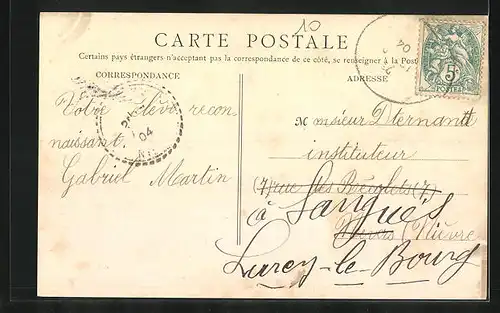 10
CARTE POSTALE
Certains pays étrangers n'acceptant pas la correspondance de ce côté, se renseigner à la Poste
CORRESPONDANCE
ADRESSE
5c
POSTES
04
Votre élève recon
naissant.
Gabriel Martin
04
Monsieur
instituteur
(7) rue des (7)
à Langués
Nevers (Nièvre
Lurcy-le-Bourg